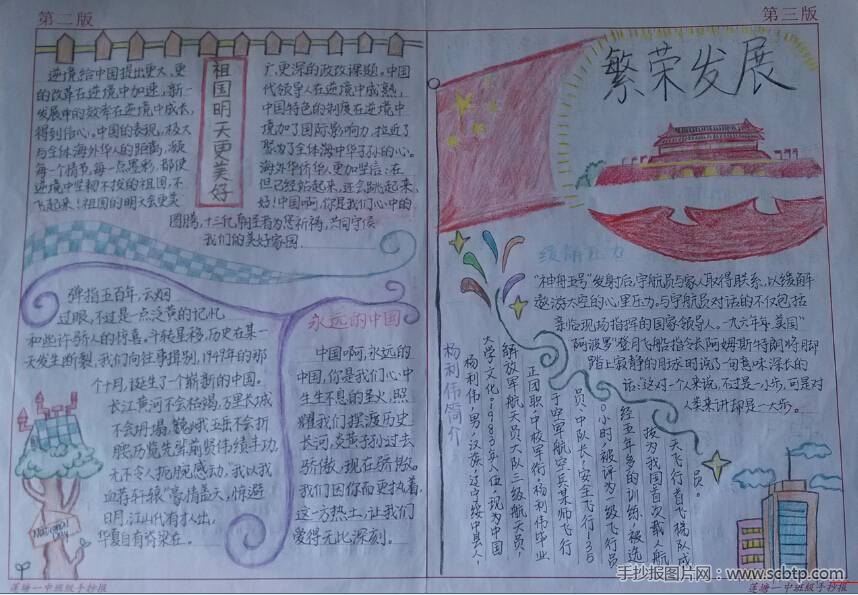 第二版
祖国明天更美好
逆境给中国提出更大、更
的改革在逆境中加进,新一
发展中的效率在逆境中成长,
得到信心。中国的表现,极大
与全体海外华人的距离,
每一个情节,每一点墨彩,都使
逆境中坚韧不拔的祖国,不
飞起来!祖国的明天会更美
广、更深的政改课题。中国
代领导人在逆境中成熟,
中国特色的制度在逆境中
境加了国际影响力,拉近了
紧了全体海中华子孙的心。
海外华侨华人更加坚信:在
但已经站起来,还会跳起来、
好!中国啊,你是我们心中的
图腾,十三亿
我们的美好家园
弹指五百年,云烟
过眼,不过是一点泛黄的记忆
和些许骄人的惊喜。斗转星移,历史在某一
天发生断裂,我们向往事揖别,1949年的那
个十月,诞生了一个崭新的中国。
长江黄河不会枯竭,万里长城
不会坍塌,巍峨五岳不会折
腰。历览先辈前贤伟绩丰功,
无不令人扼腕感动,“我以我
血荐轩辕”豪情盖天,
日月,江山代有才人出,
华夏自有
永远的中国
中国啊,永远的
中国,你是我们心中
生生不息的星火,照
耀我们摆渡历史
长河,炎黄子孙过去
骄傲,现在骄傲。
我们因你而更执着,
这一方热土,让我们
爱得无比深刻。
National
Day
莲塘一中班级手抄报
第三版
繁荣发展
缓解压力
“神舟五号”发射后,宇航员与家人取得联系,以缓解
遨游太空的心里压力,与宇航员对话的不仅包括
亲临现场指挥的国家领导人。一九六九年,美国“
阿波罗”登月飞船指令长阿姆斯特朗将脚
踏上寂静的月球时说了一句意味深长的
话:这对一个人来说,不过是一小步,可是对
人类来讲却是一大步。
杨利伟简介
杨利伟,男,汉族,辽宁绥中县人,
大学文化,1983年入伍,现为中国
解放军航天员大队三级航天员,
正团职,中校军衔,杨利伟毕业
于空军航空兵某师飞行
员、中队长,安全飞行135
0小时,被评为一级飞行员
经五年多的训练,被选
拔为我国首次载人航
天飞行首飞梯队成
员。
手抄报图片网:www.scbtp.com
莲塘一中班级手抄报